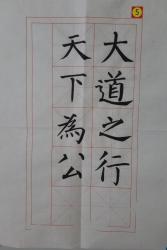 5
大道之行
天下為公